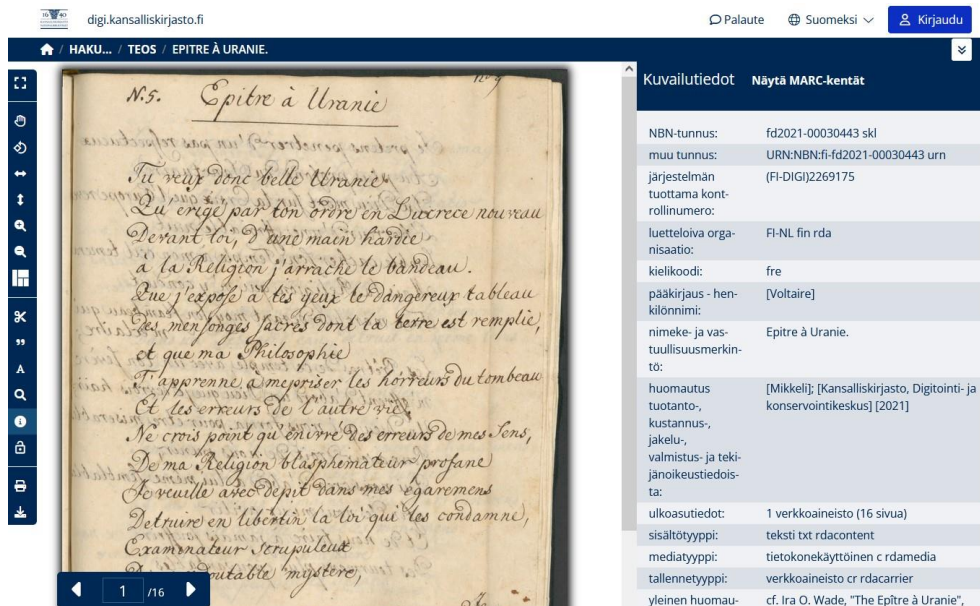 digi.kansalliskirjasto.fi
Palaute
Suomeksi
Kirjaudu
/ HAKU... / TEOS / EPITRE À URANIE.
N.5. Epitre à Uranie
Tu veux donc belle Uranie,
Qu'erigé par ton ordre en Lucrece nouveau
Devant toi, d'une main hardie
a la Religion j'arrache le bandeau.
Que j'expose a tes yeux le dangereux tableau
Des mensonges sacrés dont la terre est remplie,
et que ma Philosophie
T'apprenne a mepriser les horreurs du tombeau
Et les erreurs de l'autre vie.
Ne crois point qu'enivré des erreurs de mes Sens,
De ma Religion blasphémateur profane
Je veuille avec dépit dans mes égaremens
Detruire en libertin la loi qui les condamne,
Examinateur Scrupuleux
mystère,
1 /16
Kuvailutiedot Näytä MARC-kentät
NBN-tunnus: fd2021-00030443 skl
muu tunnus: URN:NBN:fi-fd2021-00030443 urn
järjestelmän (FI-DIGI)2269175
tuottama kont-
rollinumero:
luetteloiva orga- FI-NL fin rda
nisaatio:
kielikoodi: fre
pääkirjaus - hen- [Voltaire]
kilönnimi:
nimeke- ja vas- Epitre à Uranie.
tuullisuusmerkin-
tö:
huomautus [Mikkeli]; [Kansalliskirjasto, Digitointi- ja
tuotanto-, konservointikeskus] [2021]
kustannus-,
jakelu-,
valmistus- ja teki-
jänoikeustiedois-
ta:
ulkoasutiedot: 1 verkkoaineisto (16 sivua)
sisältötyyppi: teksti txt rdacontent
mediatyyppi: tietokonekäyttöinen c rdamedia
tallennetyyppi: verkkoaineisto cr rdacarrier
yleinen huomau- cf. Ira O. Wade, "The Epître à Uranie",